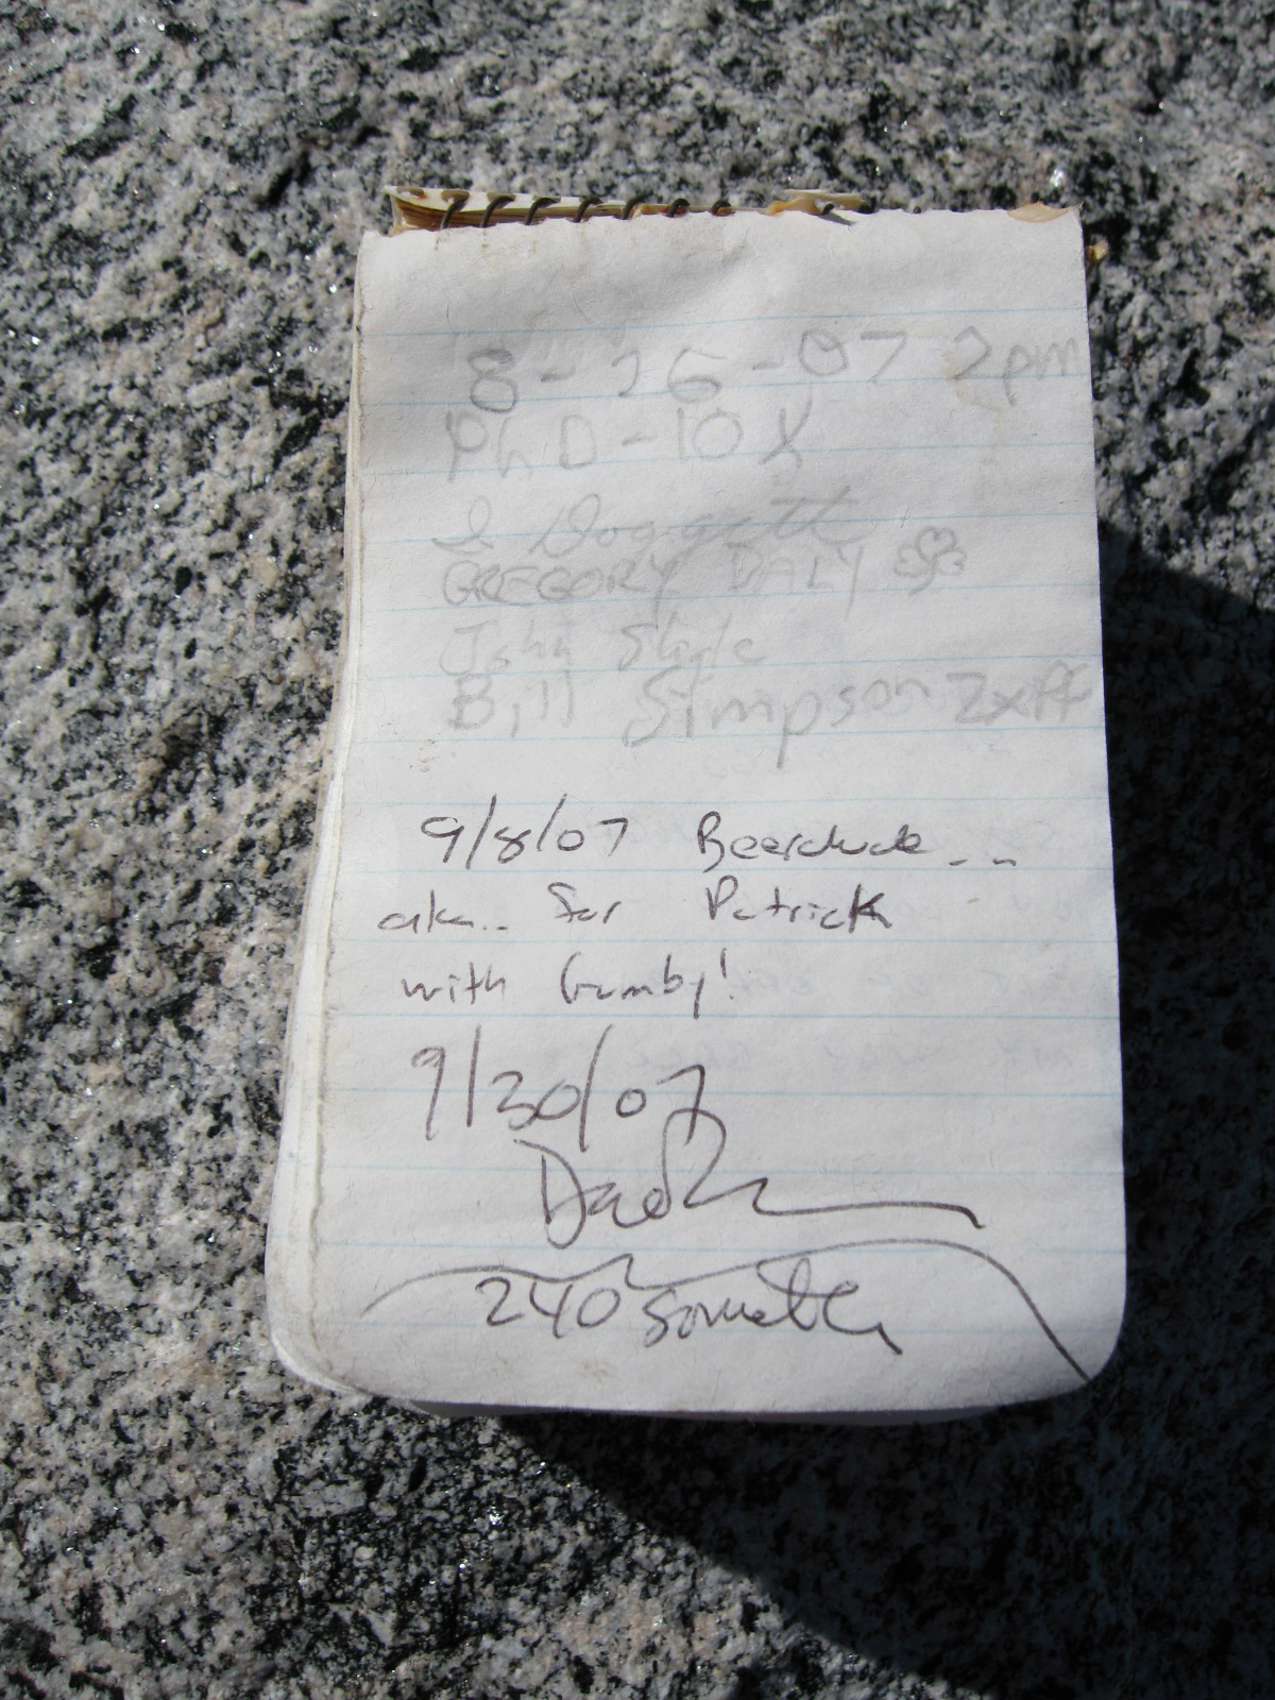 8-26-07 2pm
PhD-10X
D Doggett
GREGORY DALY
John
Bill Simpson 2xff
9/8/07 Beerdude...
aka.. for Patrick
with Gumby!
9/30/07
240